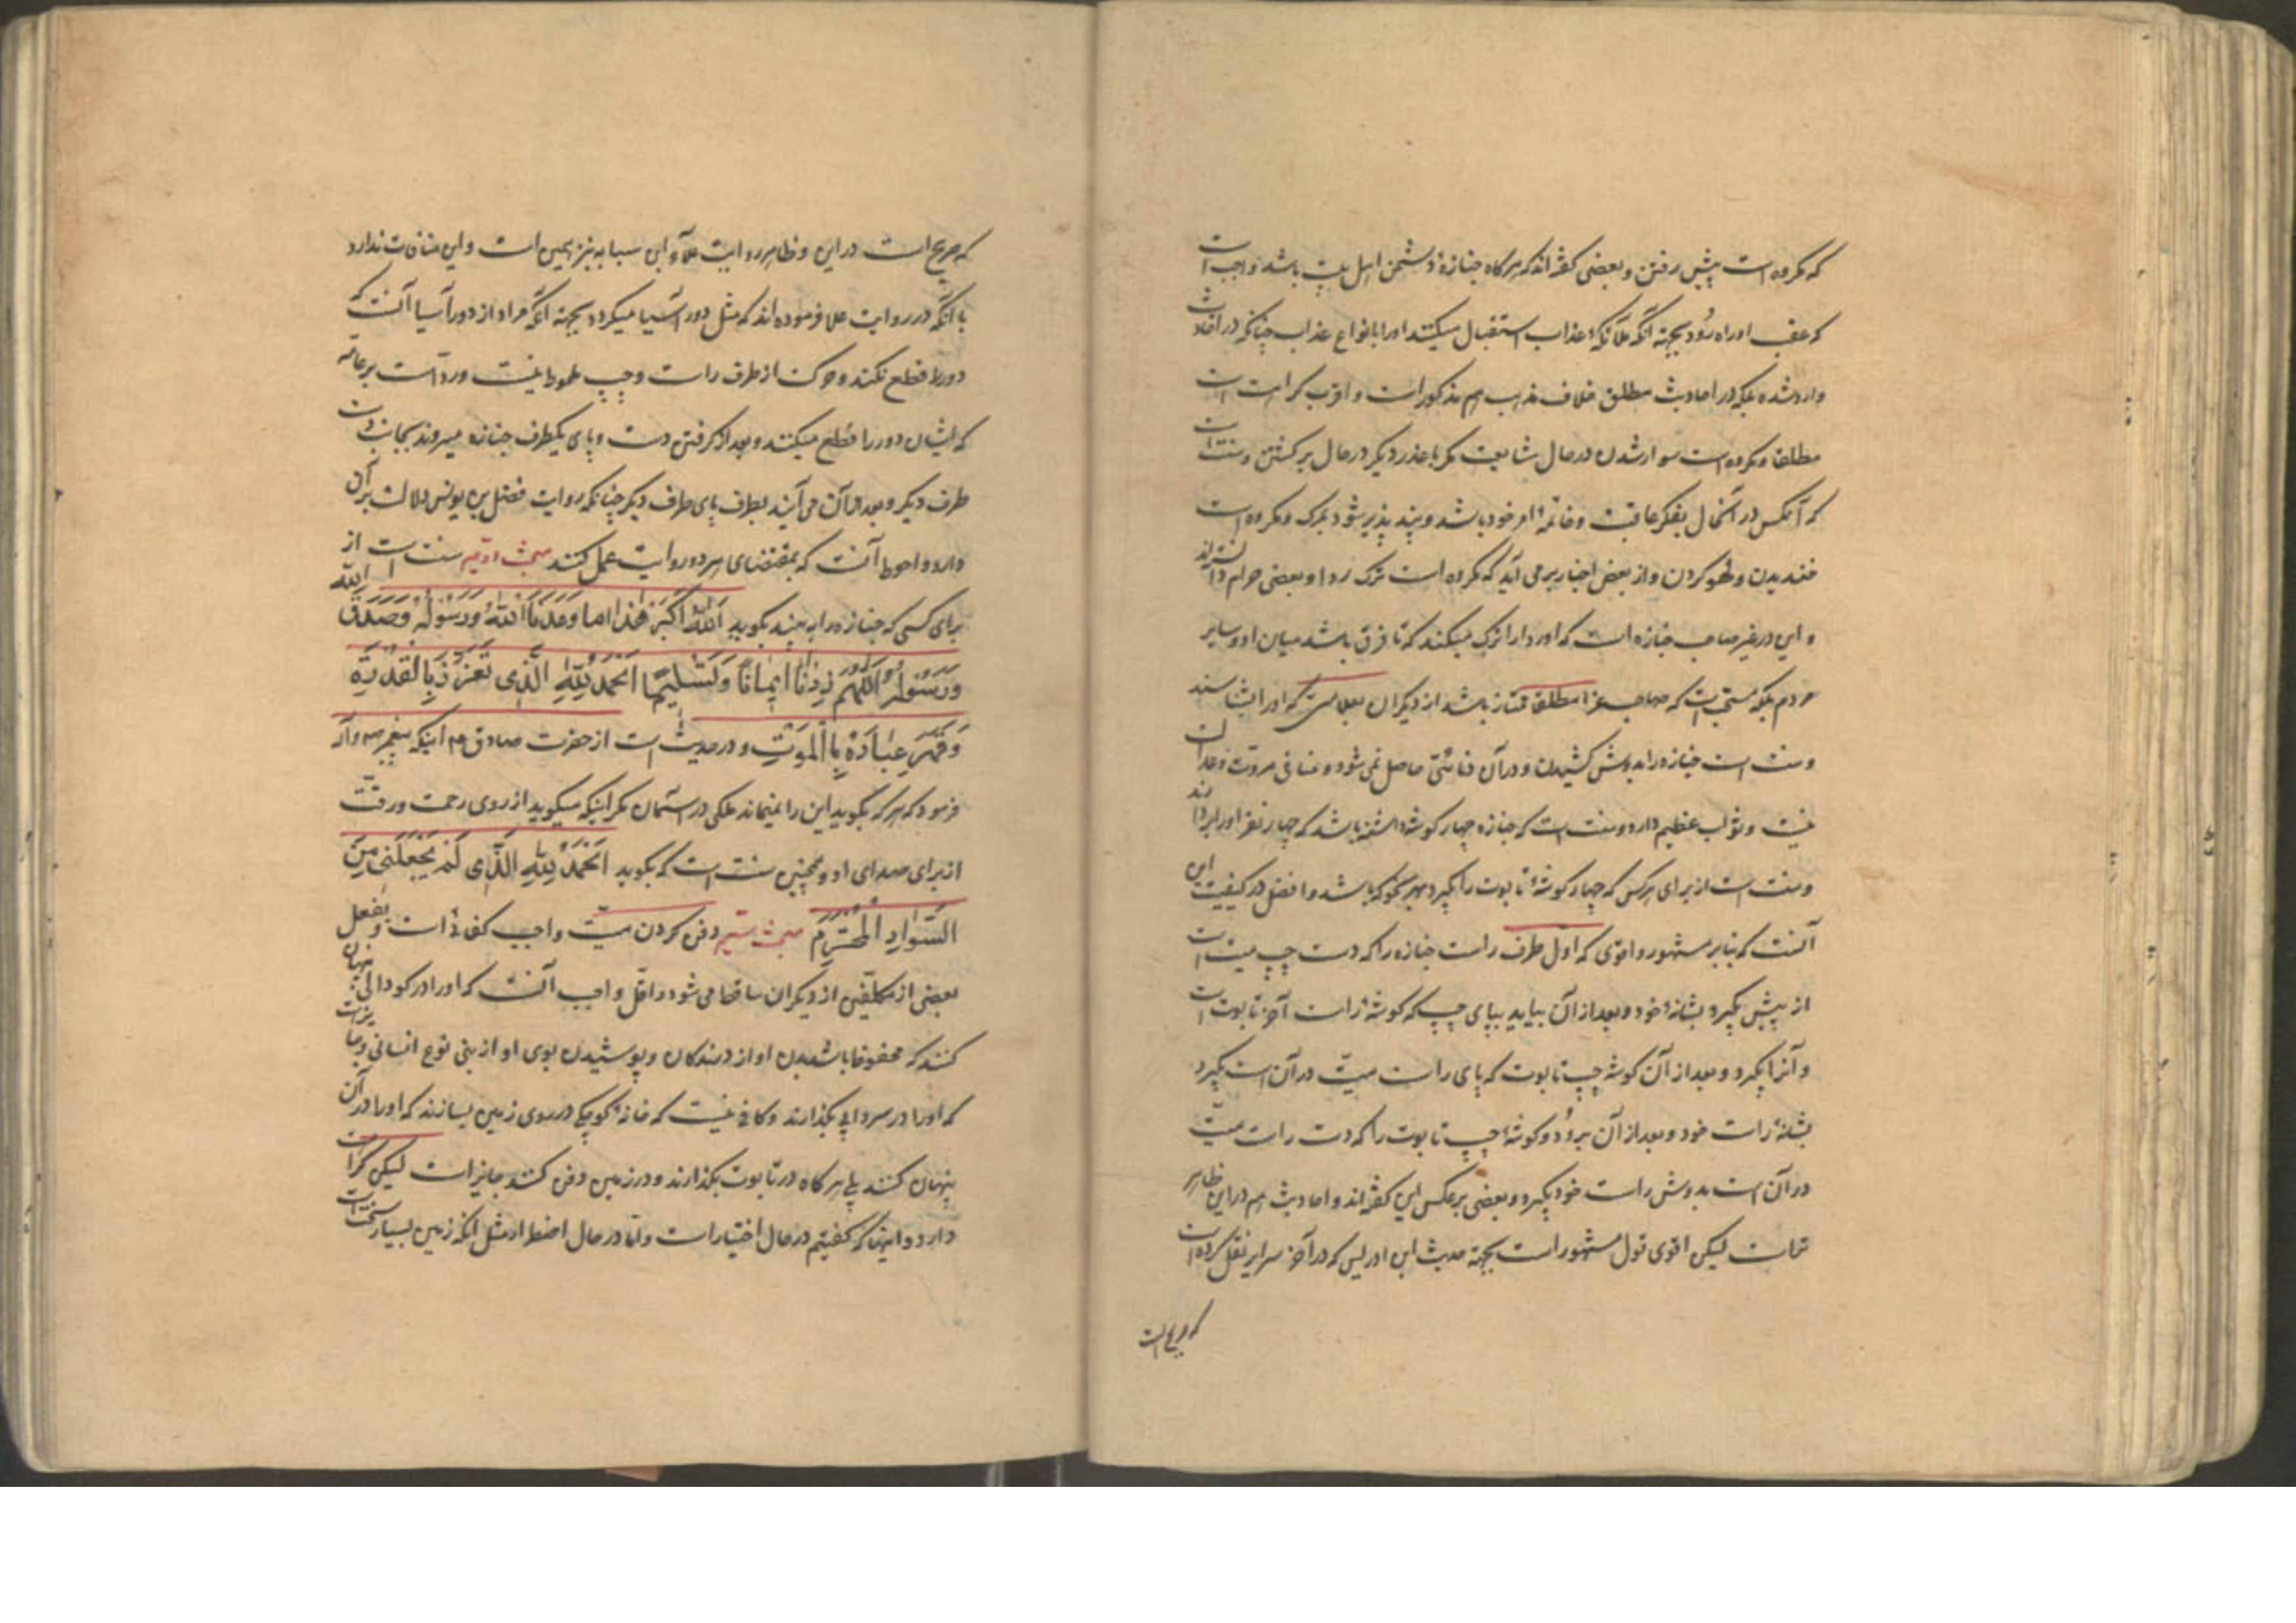 که مکروه است پیش رفتن و بعضی گفته‌اند که هرگاه جنازهٔ دشمن اهل بیت باشد واجب است
که عقب او راه رود بجهة آنکه ملائکهٔ عذاب استقبال میکنند او را بانواع عذاب چنانکه در احادیث
وارد شده بلکه در احادیث مطلق خلاف مذهب هم مذکور است و اقرب کراهت است
مطلقا و مکروه است سوار شدن در حال مشایعت مگر با عذر دیگر در حال برگشتن و سنت است
که آنکس در آنحال بفکر عاقبت و خاتمهٔ امر خود باشد و پند پذیر شود بمرک و مکروه است
خندیدن و لهو کردن و از بعض اخبار بر می آید که مکروه است ترک ردا و بعضی حرام دانسته‌اند
و این در غیر صاحب جنازه است که او ردا را ترک میکند که تا فرق باشد میان او و سایر
مردم بلکه مستحب است که صاحب عزا مطلقا ممتاز باشد از دیگران بعلامتی که او را بشناسند
و سنت است جنازه را بدوش کشیدن و در آن دنائتی حاصل نمی شود و منافی مروت و عدالت
نیست و ثواب عظیم دارد و سنت است که جنازه چهار گوشه داشته باشد که چهار نفر او را بردارند
و سنت است از برای هر کس که چهار گوشهٔ تابوت را بگیرد بهر نحو که باشد و افضل در کیفیت این
آنست که بنا بر مشهور و اقوی که اول طرف راست جنازه را که دست چپ میت است
از پیش بگیرد بشانهٔ خود و بعد از آن بیاید بپای چپ که گوشهٔ راست آخر تابوت است
و آنرا بگیرد و بعد از آن گوشه چپ تابوت که پای راست میت در آن است بگیرد
بشانهٔ راست خود و بعد از آن برود و گوشهٔ چپ تابوت را که دست راست میت
در آن است بدوش راست خود بگیرد و بعضی بر عکس این گفته‌اند و احادیث هم در این ظاهر
تر است لیکن اقوی قول مشهور است بجهة حدیث ابن ادریس که در آخر سرایر نقل کرده است
که صریح است
که صریح است در این و ظاهر روایت علا و ابن سیابه نیز همین است و این منافات ندارد
با آنکه در روایت علا فرموده‌اند که مثل دور آسیا میگردد بجهة آنکه مراد از دور آسیا آنست که
دور را قطع نکند و حرکت از طرف راست و چپ ملحوظ نیست و رد است بر عامه
که ایشان دور را قطع میکنند و بعد از گرفتن دست و پای یکطرف جنازه میروند بجانب دست
طرف دیگر و بعد از آن می آیند بطرف پای طرف دیگر چنانکه روایت فضل بن یونس دلالت بر آن
دارد و احوط آنست که بمقتضای هر دو روایت عمل کنند مبحث دویم سنت است از
برای کسی که جنازه را به بیند بگوید اَللّٰهُ اَکْبَرُ هٰذا ما وَعَدَنَا اللّٰهُ وَرَسُولُهُ وَصَدَقَ اللّٰهُ
وَرَسُولُهُ اَللّٰهُمَّ زِدْنا اِیمٰانًا وَتَسْلِیمًا اَلْحَمْدُ لِلّٰهِ الَّذِی تَعَزَّزَ بِالْقُدْرَةِ
وَقَهَرَ عِبٰادَهُ بِالْمَوْتِ و در حدیث است از حضرت صادق ع م اینکه پیغمبر ص و آله
فرمود که هر که بگوید این را نمیماند ملکی در آسمان مگر اینکه میگوید از روی رحمت و رقت
از برای صدای او و همچنین سنت است که بگوید اَلْحَمْدُ لِلّٰهِ الَّذِی لَمْ یَجْعَلْنِی مِنَ
السَّوٰادِ الْمُخْتَرَمِ مبحث سیم دفن کردن میت واجب کفائی است و بفعل
بعضی از مکلفین از دیگران ساقط می شود و اقل واجب آنست که او را در گودالی پنهان
کنند که محفوظ باشد بدن او از درندگان و پوشیدن بوی او از بنی نوع انسانی و جایز است
که او را در سردابی بگذارند و کافی نیست که خانهٔ کوچکی در روی زمین بسازند که او را در آن
پنهان کنند بلی هر گاه در تابوت بگذارند و در زمین دفن کنند جایز است لیکن کراهت
دارد و اینها که گفتیم در حال اختیار است و اما در حال اضطرار مثل آنکه زمین بسیار سخت است